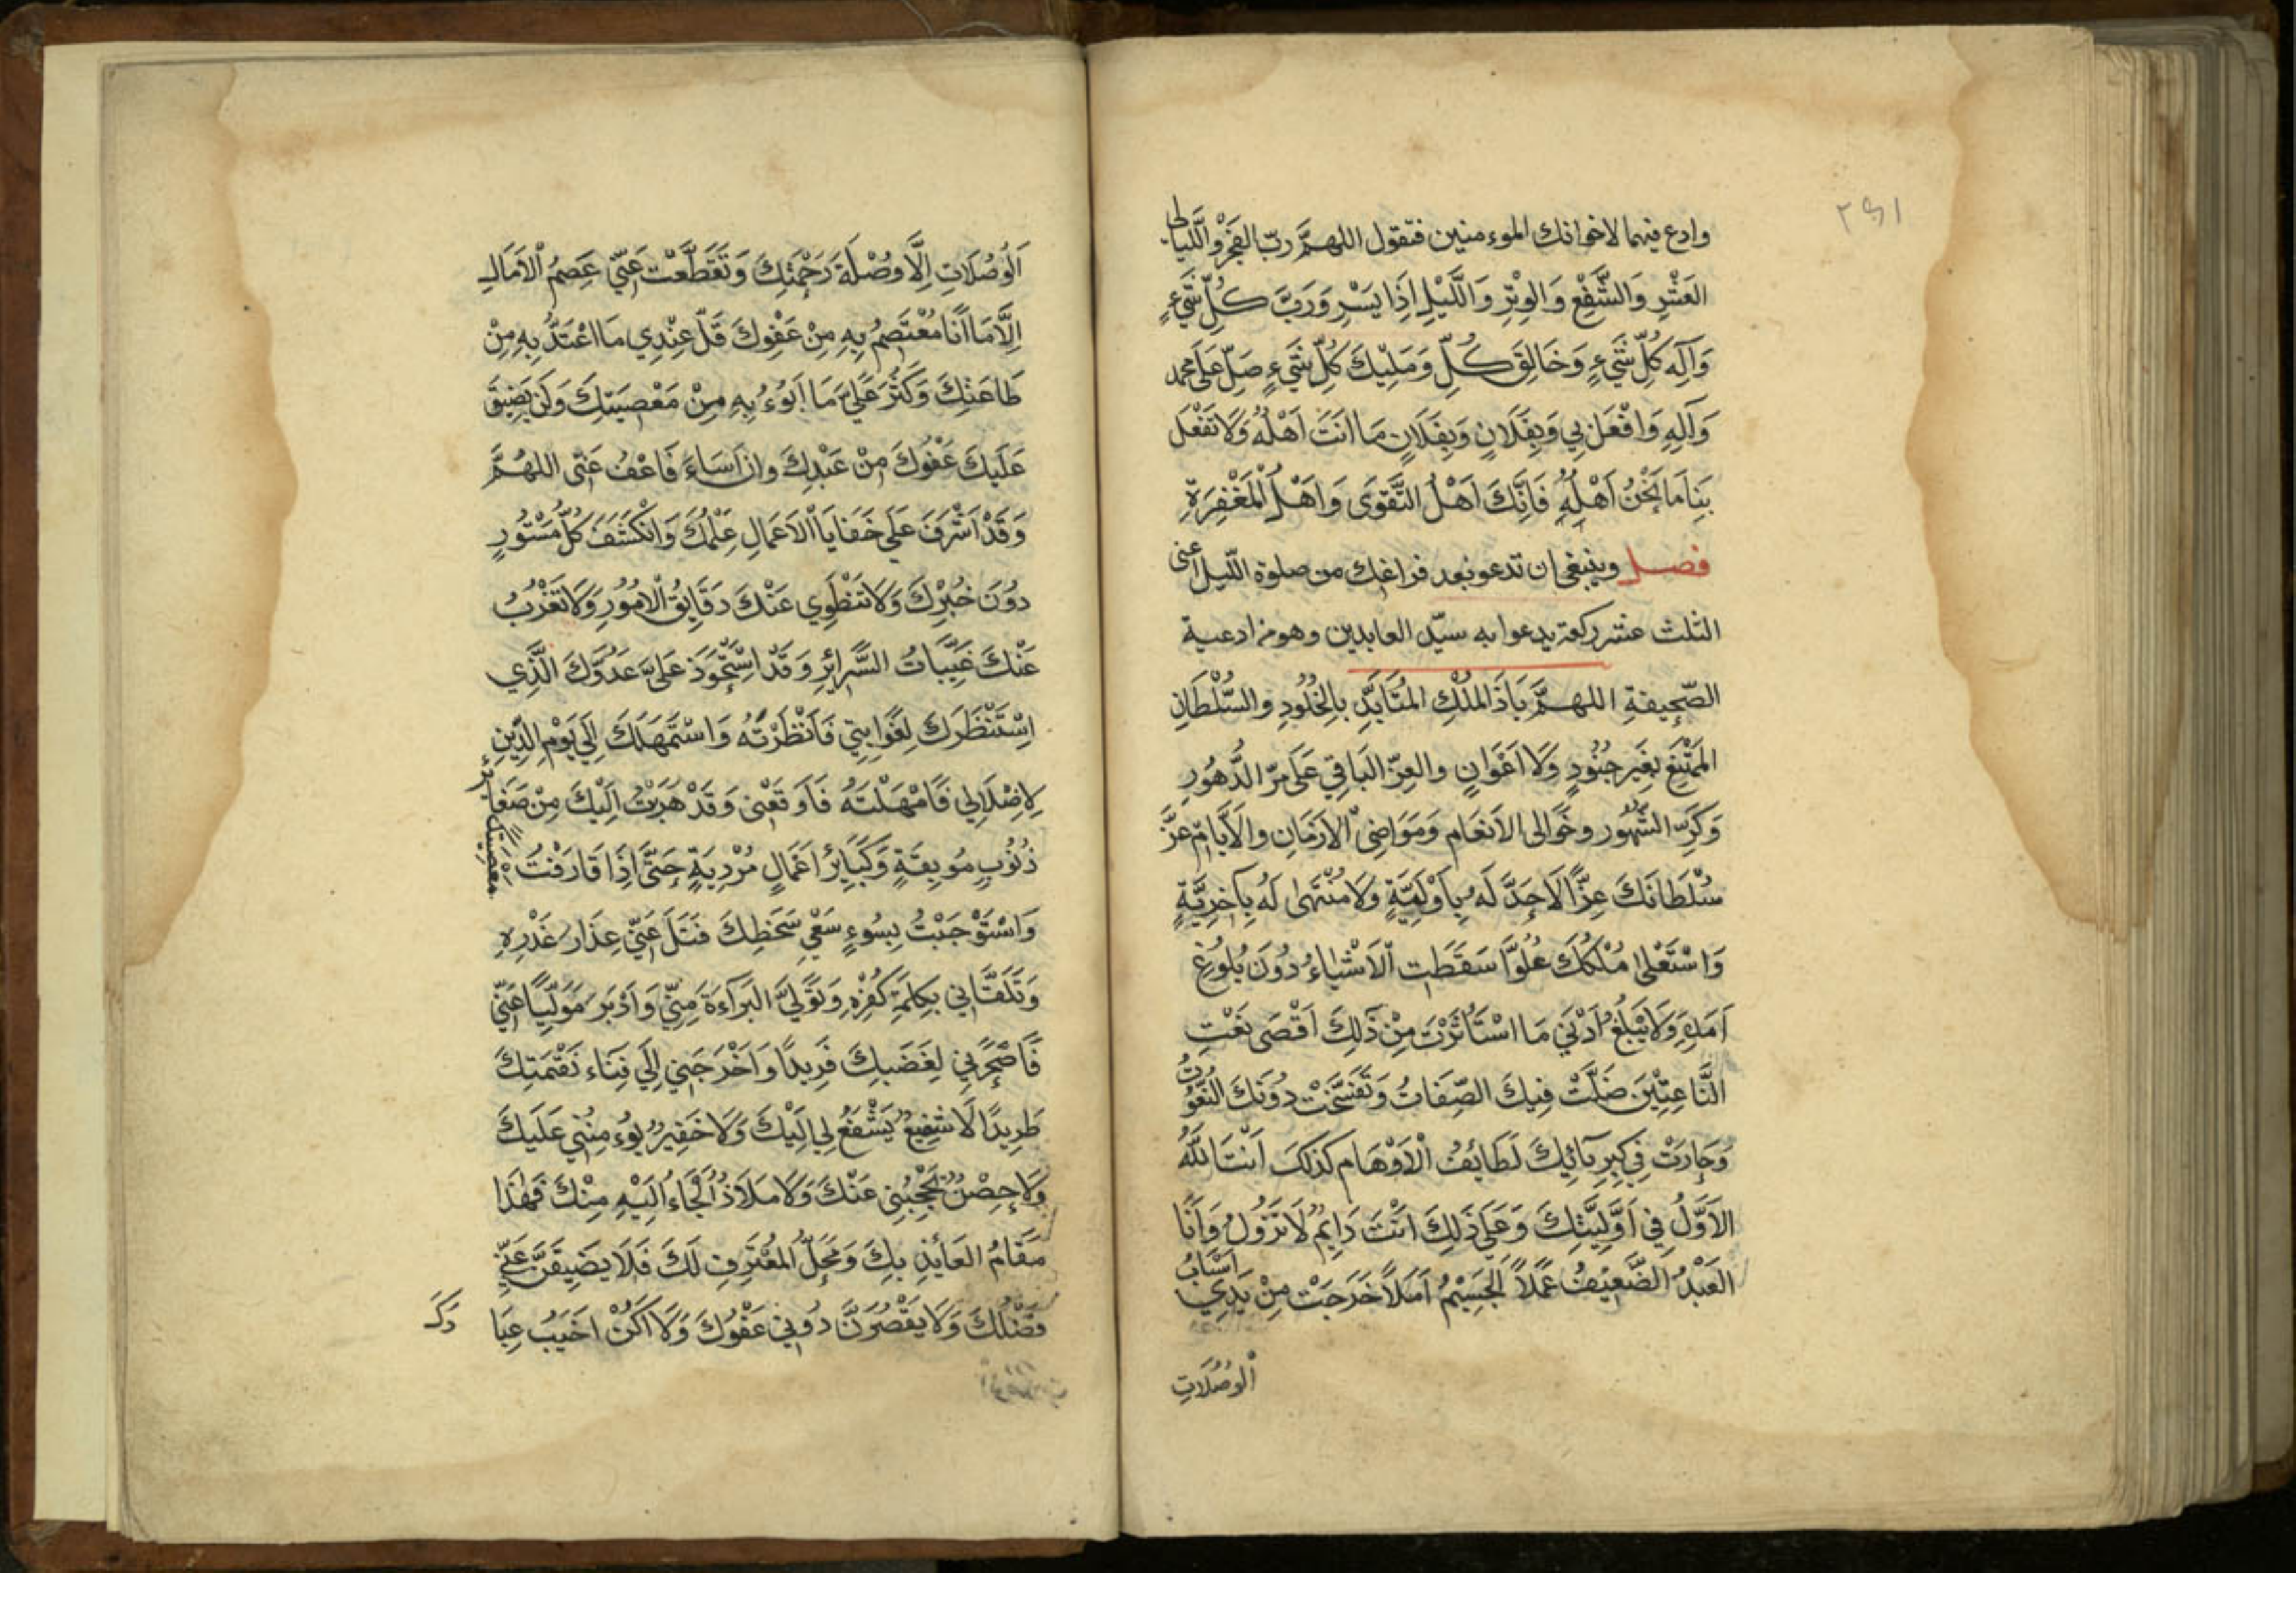 وادع فيهما لاخوانك الموءمنين فتقول اللهمَّ ربّ الفَجْرِ وَاللَّيالى
العَشْرِ وَالشَّفْعِ وَالوِتْرِ وَاللَّيْلِ اِذَا يَسْرِ وَرَبَّ كُلِّ شَيْءٍ
وَآلِهَ كُلِّ شَيْءٍ وَخَالِقَ كُلِّ وَمَلِيْكَ كُلِّ شَيْءٍ صَلِّ عَلَى محمد
وَآلِهِ وَافْعَلْ بِي وَبِفَلَانٍ وَبِفَلَانٍ مَا اَنْتَ اَهْلُهُ وَلَا تَفْعَلْ
بِنَا مَا نَحْنُ اَهْلُهُ فَاِنَّكَ اَهْلُ التَّقْوَى وَاَهْلُ الْمَغْفِرَةِ
فصل وينبغى ان تدعو بعد فراغك من صلوة اللّيل اعنى
الثلث عشر ركعة يدعوا به سيّد العابدين وهو من ادعية
الصّحِيفةِ اللهمَّ يَاذَا المُلْكِ المُتَأَبِّدِ بِالخُلُودِ والسُّلْطَانِ
المُمْتَنِعِ بِغَيرِ جُنُودٍ وَلَا اَعْوَانٍ والعِزّ البَاقِي عَلَى مَرّ الدُّهُورِ
وَكَرِّ الشُّهُور وخَوَالى الاَنعَام وَمَوَاضِىْ الاَزمَانِ والاَيَّامِ عَزَّ
سُلْطَانَكَ عِزًّا لَا حَدَّ لَهُ بِاَوَّلِيَّةٍ وَلَا مُنْتَهٰى لَهُ بِآخِرِيَّةٍ
وَاسْتَعْلىٰ مُلْكُكَ عُلُوًّا سَقَطَتِ الاَشْيَاءُ دُونَ بُلُوغِ
اَمَدِهِ وَلَا يَبْلُغُ اَدْنَى مَا اسْتَأثَرْتَ مِنْ ذٰلِكَ اَقْصَى نَعْتِ
النَّاعِتِيْنَ ضَلَّتْ فِيكَ الصِّفَاتُ وَتَفَسَّخَتْ دُونَكَ النُّعُوْتُ
وَحَارَتْ فِي كِبرِيَآئِكَ لَطَائِفُ الْاَوْهَامِ كَذٰلِكَ اَنْتَ اللّٰهُ
الاَوَّلُ فِي اَوَّلِيَّتِكَ وَعَلَى ذَلِكَ اَنْتَ دَايِمٌ لَا تَزُولُ وَاَنَا
العَبْدُ الضَّعِيْفُ عَمَلاً الجَسِيْمُ اَمَلاً خَرَجَتْ مِنْ يَدِي اَسْبَابُ
الْوُصُلَاتِ
اَلْوُصُلَاتِ اِلَّا وُصْلَةَ رَحْمَتِكَ وَتَقَطَّعَتْ عَنِّي عِصَمُ الْاَمَالِ
اِلَّا مَا اَنَا مُعْتَصِمٌ بِهِ مِنْ عَفْوِكَ قَلَّ عِنْدِي مَا اعْتَدُّ بِهِ مِنْ
طَاعَتِكَ وَكَثُرَ عَلَيَّ مَا اَبُوْءُ بِهِ مِنْ مَعْصِيَتِكَ وَلَنْ يَضِيقَ
عَلَيكَ عَفْوُكَ مِنْ عَبْدِكَ وان اَسَاءَ فَاعْفُ عَنّى اللهُمَّ
وَقَدْ اَشْرَفَ عَلَى خَفَايَا الْاَعْمَالِ عِلْمُكَ وَانْكَشَفَ كُلُّ مَسْتُورٍ
دوُنَ خُبْرِكَ وَلَا تَنْطَوِي عَنْكَ دَقَايِقُ الْامُوْرِ وَلَا تَعْزُبُ
عَنْكَ غَيِّبَاتُ السَّرائِرِ وَقَدْ اسْتَحْوَذَ عَلَيَّ عَدُوُّكَ الَّذِي
اسْتَنْظَرَكَ لِغَوايَتِي فَاَنْظَرْتَهُ وَاسْتَمْهَلَكَ اِلَى يَوْمِ الدِّيْنِ
لِاِضْلَالِي فَاَمْهَلْتَهُ فَاَوقَعْنِى وَقَدْ هَرَبْتُ اِلَيْكَ مِنْ صَغَايِرَ
ذُنُوبٍ مُوبِقَةٍ وَكَبَايِرَ اَعْمَالٍ مُرْدِيَةٍ حَتَّى اِذَا قَارَفْتُ مَعْصِيَتَكَ
وَاسْتَوْجَبْتُ بِسُوءِ سَعْيِ سَخَطِكَ فَتَلَ عَنِّي عِذَارَ غَدْرِهِ
وَتَلَقَّانِي بِكَلِمَةِ كُفْرِهِ وَتَوَلَّى البَرَآءةَ مِنِّي وَاَدْبَرَ مُوَلِّيًا عَنِّي
فَاَصْحَرَنِي لِغَضَبِكَ فَرِيدًا وَاَخْرَجَنِي اِلَى فِنَاء نَقْمَتِكَ
طَرِيدًا لَا شَفِيعٌ يَشْفَعُ لِي اِلَيْكَ وَلَا خَفِيرٌ يُوءمِنُنِي عَلَيكَ
وَلَا حِصْنٌ يَحْجُبُنِي عَنْكَ وَلَا مَلَاذٌ اَلْجَاءُ اِلَيْهِ مِنْكَ فَهٰذَا
مَقَامُ العَايِذِ بِكَ وَمَحَلُّ المُعْتَرِفِ لَكَ فَلَا يَضِيقَنَّ عَنِّي
فَضْلُكَ وَلَا يَقْصُرَنَّ دوُنِي عَفْوُكَ وَلَا اَكُنْ اَخْيَبَ عِبَا
دِكَ